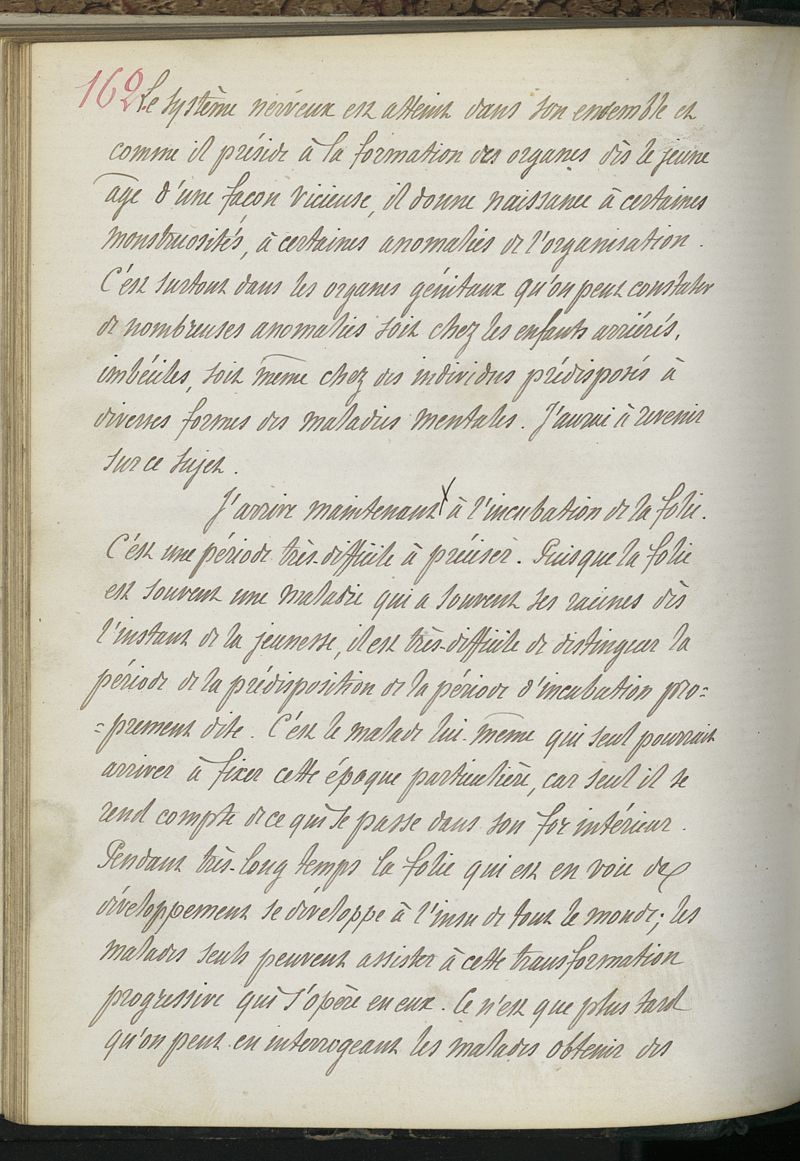 162 Le système nerveux est atteint dans son ensemble et
comme il préside à la formation des organes dès le jeune
âge d'une façon vicieuse, il donne naissance à certaines
monstruosités, à certaines anomalies de l'organisation.
C'est surtout dans les organes génitaux qu'on peut constater
de nombreuses anomalies soit chez les enfants arriérés,
imbéciles, soit même chez des individus prédisposés à
diverses formes des maladies mentales. J'aurai à revenir
sur ce sujet.
J'arrive maintenant à l'incubation de la folie.
C'est une période très-difficile à préciser. Puisque la folie
est souvent une maladie qui a souvent ses racines dès
l'instant de la jeunesse, il est très-difficile de distinguer la
période de la prédisposition de la période d'incubation pro=
=prement dite. C'est le malade lui-même qui seul pourrait
arriver à fixer cette époque particulière, car seul il se
rend compte de ce qui se passe dans son for intérieur.
Pendant très-long temps la folie qui est en voie de
développement se développe à l'insu de tout le monde; les
malades seuls peuvent assister à cette transformation
progressive qui s'opère en eux. Ce n'est que plus tard
qu'on peut en interrogeant les malades obtenir des